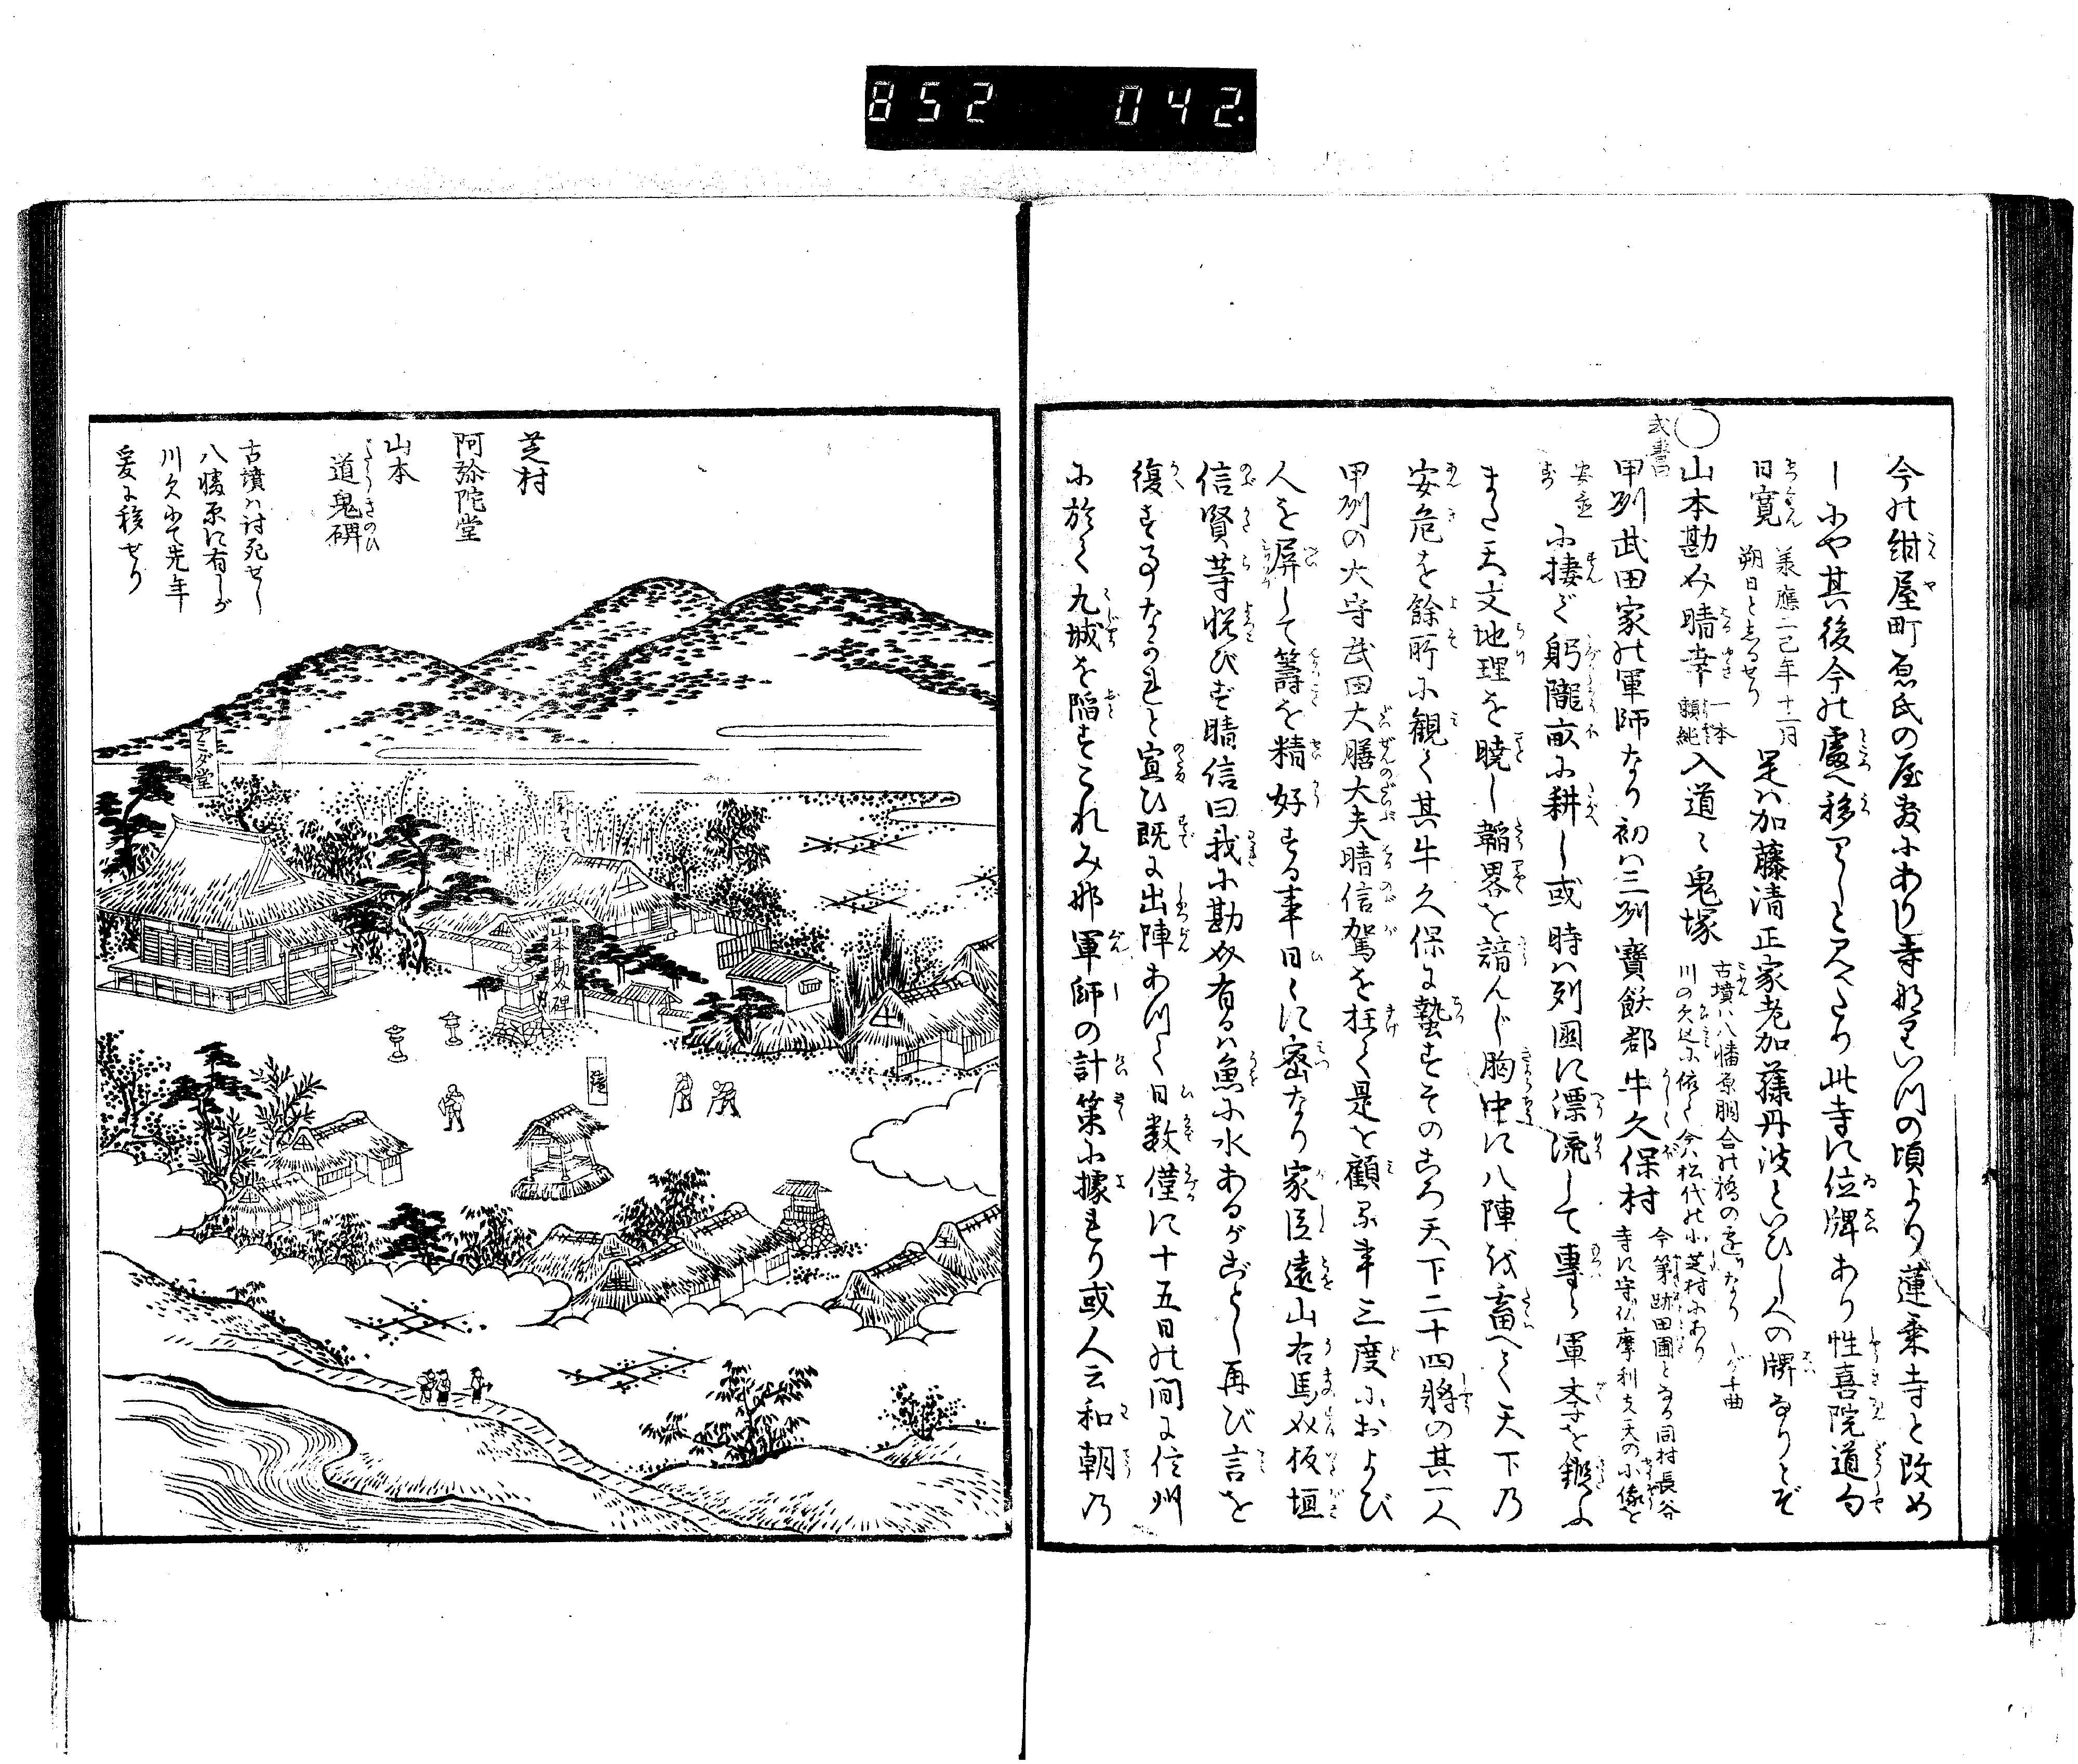 852 042.
今の紺屋町原氏の屋敷にあり寺号をいつの頃より蓮乗寺と改め
しにや其後今の處へ移りしと見えたり此寺に位牌あり性喜院道句
日寛
承應二己年十二月
朔日としるせり
是ハ加藤清正家老加藤丹波といひし人の牌なりとぞ
山本勘介晴幸
一本
頼純
入道々鬼塚
古墳ハ八幡原胴合の橋の辺りなりしが千曲
川の欠込に依て今ハ松代の小芝村にあり
或書曰
甲州武田家の軍師なり初ハ三州寳飫郡牛久保村
今第跡田圃となる同村長谷
寺に守仏摩利支天の小像を
安置
す
に捿ぞ躬隴畝に耕し或時ハ列國に漂流して專ら軍李を鍛ふ
また天文地理を暁し韜畧を諳んじ胸中に八陣を畜へて天下乃
安危を餘所に観て其牛久保に蟄すそのころ天下二十四將の其一人
甲州の大守武田大膳大夫晴信駕を枉て是を顧る事三度におよび
人を屏して籌を精好する事日々に密なり家臣遠山右馬介板垣
信賢等悦びず晴信曰我に勘介有るハ魚に水あるがごとし再び言を
復する事なかれと宣ひ既に出陣あつて日数僅に十五日の間に信州
に於て九城を陥すこれみな軍師の計策に據れり或人云和朝乃
芝村
阿弥陀堂
山本
道鬼碑
だうきのひ
古墳ハ討死せし
八幡原に有しが
川欠にて先年
爰に移せり
アミダ堂
山本勘介碑